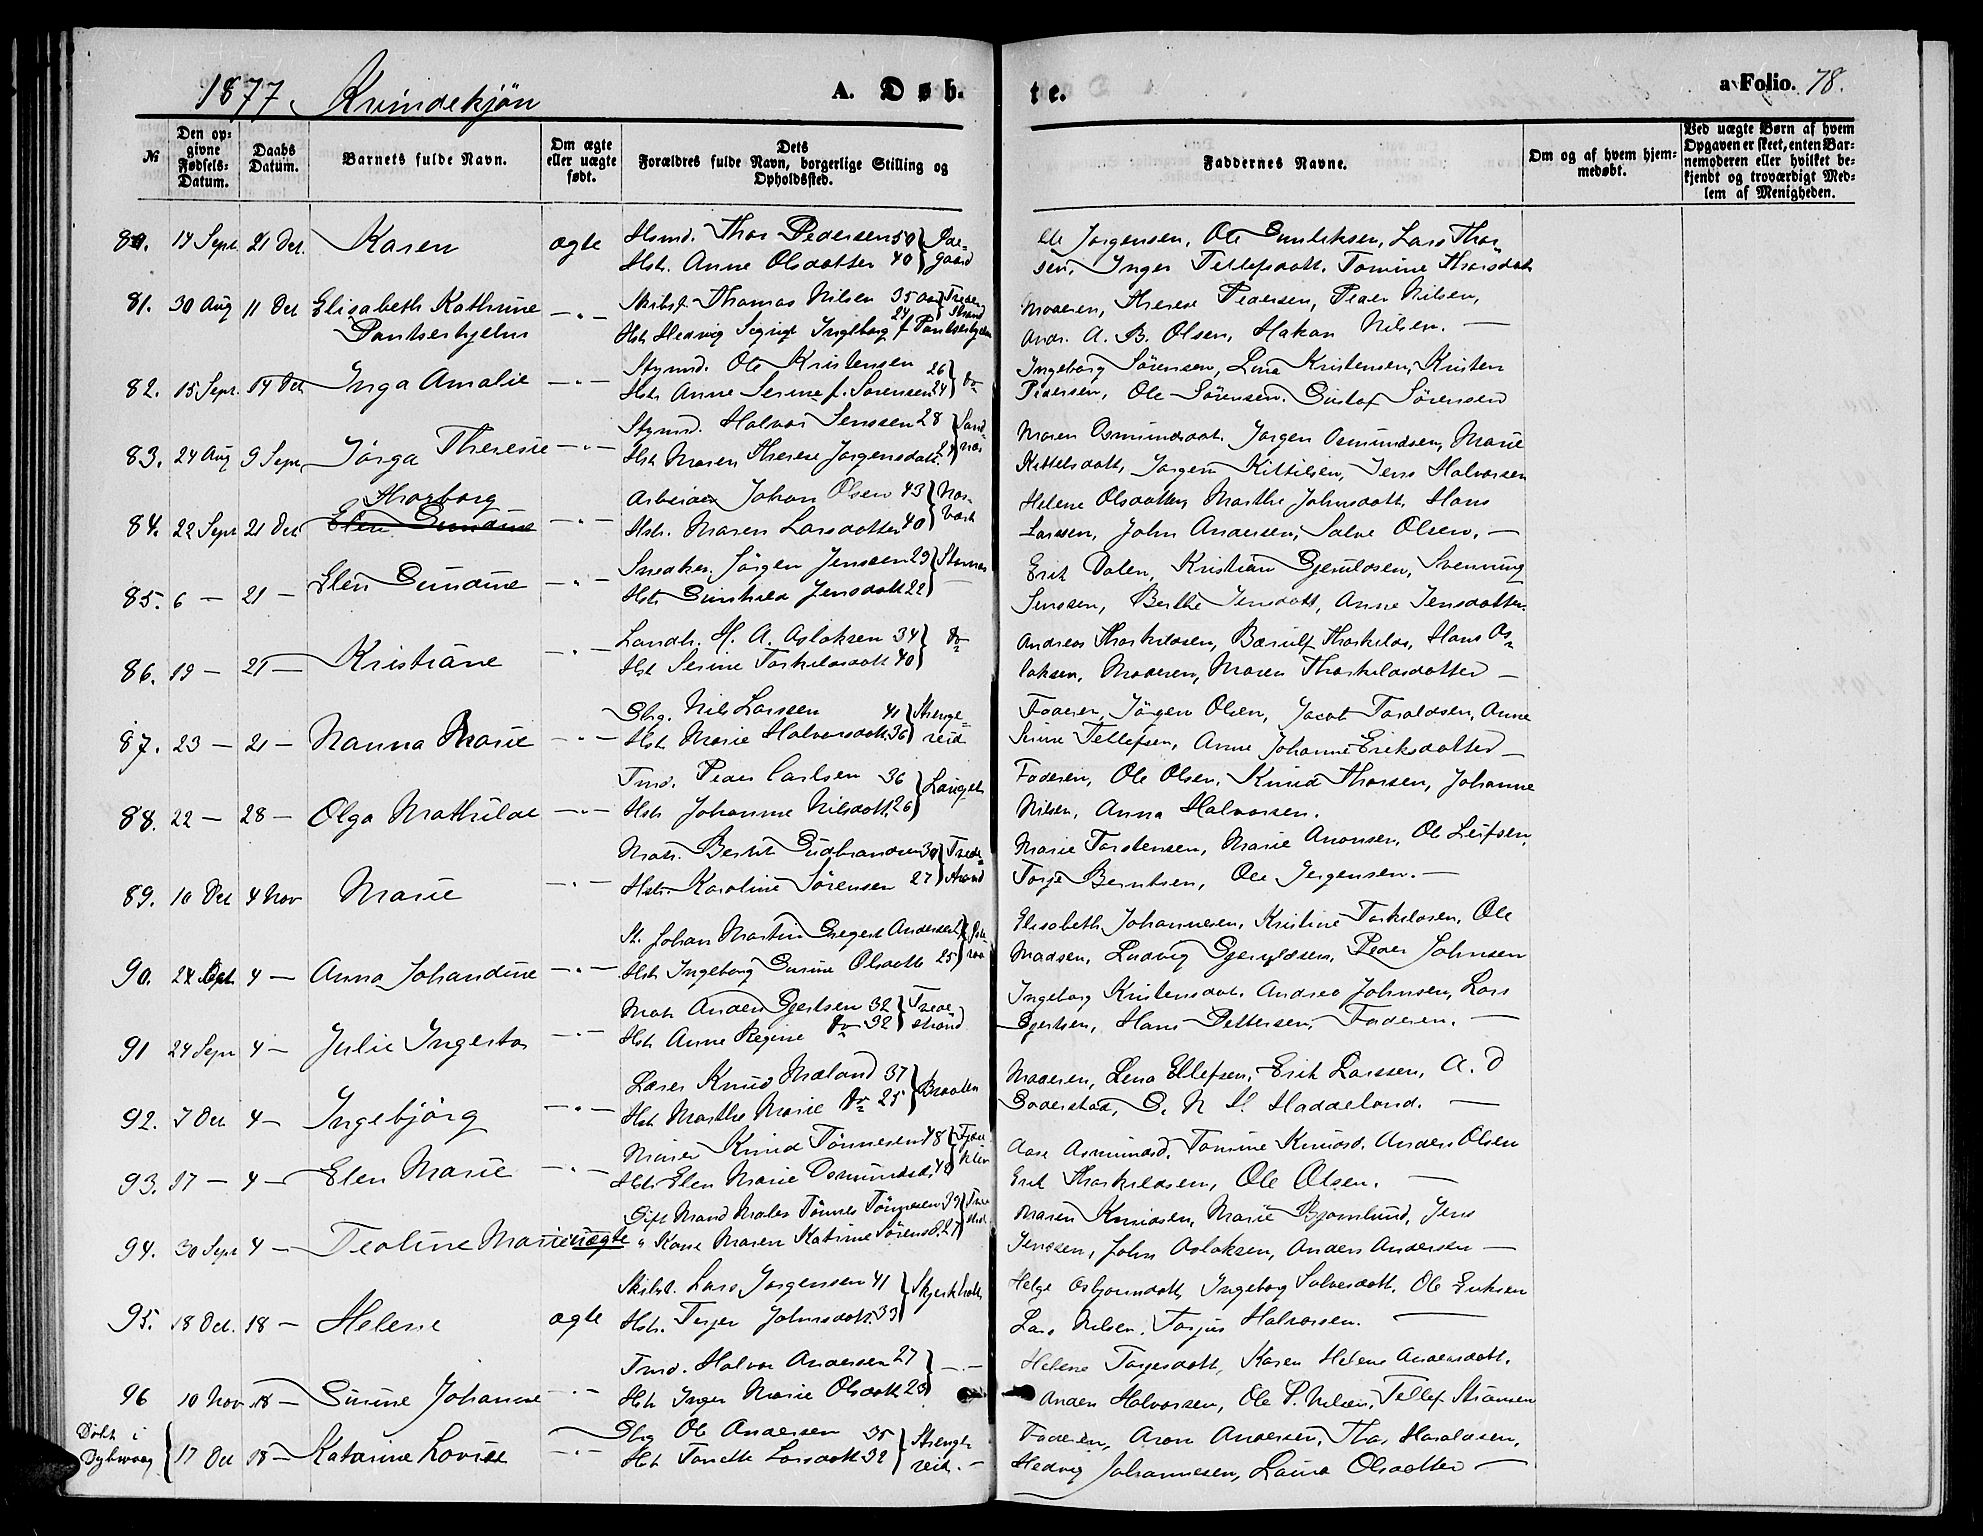 1877. Kvindekjön
A. Døb-
te.
a Folio. 78.
№
Den op-
givne
Fødsels-
Datum.
Daabs
Datum.
Barnets fulde Navn.
Om ægte
eller uægte
født.
Dets
Forældres fulde Navn, borgerlige Stilling og
Opholdssted.
Faddernes Navne.
Om og af hvem hjem-
medøbt.
Ved uægte Børn af hvem
Opgaven er skeet, enten Bar-
nemoderen eller hvilket be-
kjendt og troværdigt Med-
lem af Menigheden.
80. 14 Sept. 21 Oct. Karen ægte Thor Pedersen 50
Hstr. Anne Olsdatter 40
Ole Jørgensen, Ole Lars Thor-
sen, Inger Tellefsdatt. Tomine Thorsdatt
81. 30 Aug 11 Oct Elisabeth Kathrine
Pantserhjelm
Skibsf. Thomas Nilsen 35 Tvede-
strand
Hstr Hedvig Sigrid Ingeborg f. Pantserhjelm 24
Moderen, Therese Pedersen, Peder Nilsen,
Andr. A. B. Olsen, Hakon Nilsen. —
82. 15 Sept. 14 Oct Inga Amalie
Styrmd. Ole Kristensen 26
Hstr Anne Serine f. Sørensen 24 do
Ingeborg Sörensen, Lina Kristensen, Kristen
Pedersen, Ole Sörensen. Gustaf Sörensen
83. 24 Aug 9 Sept Jörga Theresie
Styrmd. Halvor Jenssen 28
Hstr Maren Therese Jørgensdatt. 24
Maren Osmundsdatt. Jørgen Osmundsen, Marie
Kittelsdatt, Jørgen Kittilsen, Jens Halvorsen
84. 22 Sept 21 Oct Thorborg
Elen Gundine
Arbeider Johan Olsen 43
Hstr. Maren Larsdatter 40
Helene Olsdatter, Marthe Johnsdatt, Hans
Larssen, John Andersen, Salve Olsen. —
85. 6 — 21 — Elen Gundine
Snedker. Jörgen Jenssen 29
Hstr Gunhild Jensdatt 22
Erik Dalen, Kristian Gjeruldsen, Svenning
Jenssen, Berthe Jensdatt, Anne Jensdatter.
86. 19 — 21 — Kristiane
Landh. H. A. Aslaksen 34 do
Hst Serine Torkildsdatt 40
Andreas Thorkildsen, Thorkilds, Hans As-
laksen, Moderen, Maren Thorkildsdatter —
87. 23 — 21 — Nanna Marie
Gbrg. Nils Larssen 41 Strenge-
reid
Hst Marie Halvorsdatt 36
Faderen, Jörgen Olsen, Jacob Taraldsen, Anne
Serine Tellefsen, Anne Johanne Eriksdatter —
88. 22 — 28 — Olga Mathilde
Tmd. Peder Carlsen 36
Hstr Johanne Nilsdatt. 26
Faderen, Ole Olsen, Knud Thorsen, Johanne
Nilsen, Anna Halvorsen.
89. 10 Oct 4 Nov Marie
Matr. Bernt Gudbrandsen 30 Tvede-
strand
Hstr. Karoline Sörensen 27
Marie Torstensen, Marie Aronsen, Ole Leifsen,
Torje Berntsen, Ole Jergensen. —
90. 24 Sept 4 — Anna Johandine
St. Johan Martin Gregert Andersen
Hstr Ingeborg Gurine Olsdatt 25
Elisabeth Johannesen, Kristine Torkildsen, Ole
Madsen, Ludvig Gjeruldsen, Peder Johnsen
91 24 Sept 4 — Julie Ingerta
Matr Anders Gjertsen 32 Tvede-
strand
Hstr Anne Regine do 32
Ingeborg Kristensdat. Andrea Johnsen, Lars
Gjertsen, Hans Pettersen, Faderen. —
92. 7 Oct 4 — Ingebjörg
Lærer Knud Mæland 37 Braaten
Hst Marthe Marie do 25
Moderen, Lena Ellefsen, Erik Larssen, A. D
Haddeland. —
93. 17 — 4 — Elen Marie
Knud Tönnesen 48
Hstr Elen Marie Osmundsd. 42
Aase Asmundsd. Tomine Knudsd. Anders Olsen
Erik Thorkildsen, Ole Olsen. —
94. 30 Sept 4 — Teoline Marie uægte
Gift Mand Maler Tönnes Tönnesen 39
" Kone Maren Katrine Sörensd. 27
Maren Knudsen, Marie Bjornlund, Jens
Jenssen, John Aslaksen, Anders Andersen —
95. 18 Oct. 18 — Helene ægte
Skibst. Lars Jørgensen 41 Skjerkholt
Hstr. Terjer Johnsdatt. 33
Helge Osbjørnsdatt, Ingeborg Salvesdatt, Ole Eriksen
Lars Nilsen, Torjus Halvorsen. —
96 10 Nov 18 — Sinine Johanne
Tmd. Halvor Andersen 27
Hst Inger Marie Olsdatt 23
Helene Torgersdatt, Karen Helene Andersdatt.
Anders Halvorsen, Ole P. Nilsen, Tellef Stiansen
Döbt i
Dybvaag
17 Oct 18 — Katrine Lovise
Gbrg Ole Andersen 35 Strenge-
reid. —
Hst Tonette Larsdatt 32
Faderen, Aron Andersen, Thor Haraldsen,
Hedvig Johannesen, Laura Olsdatter —